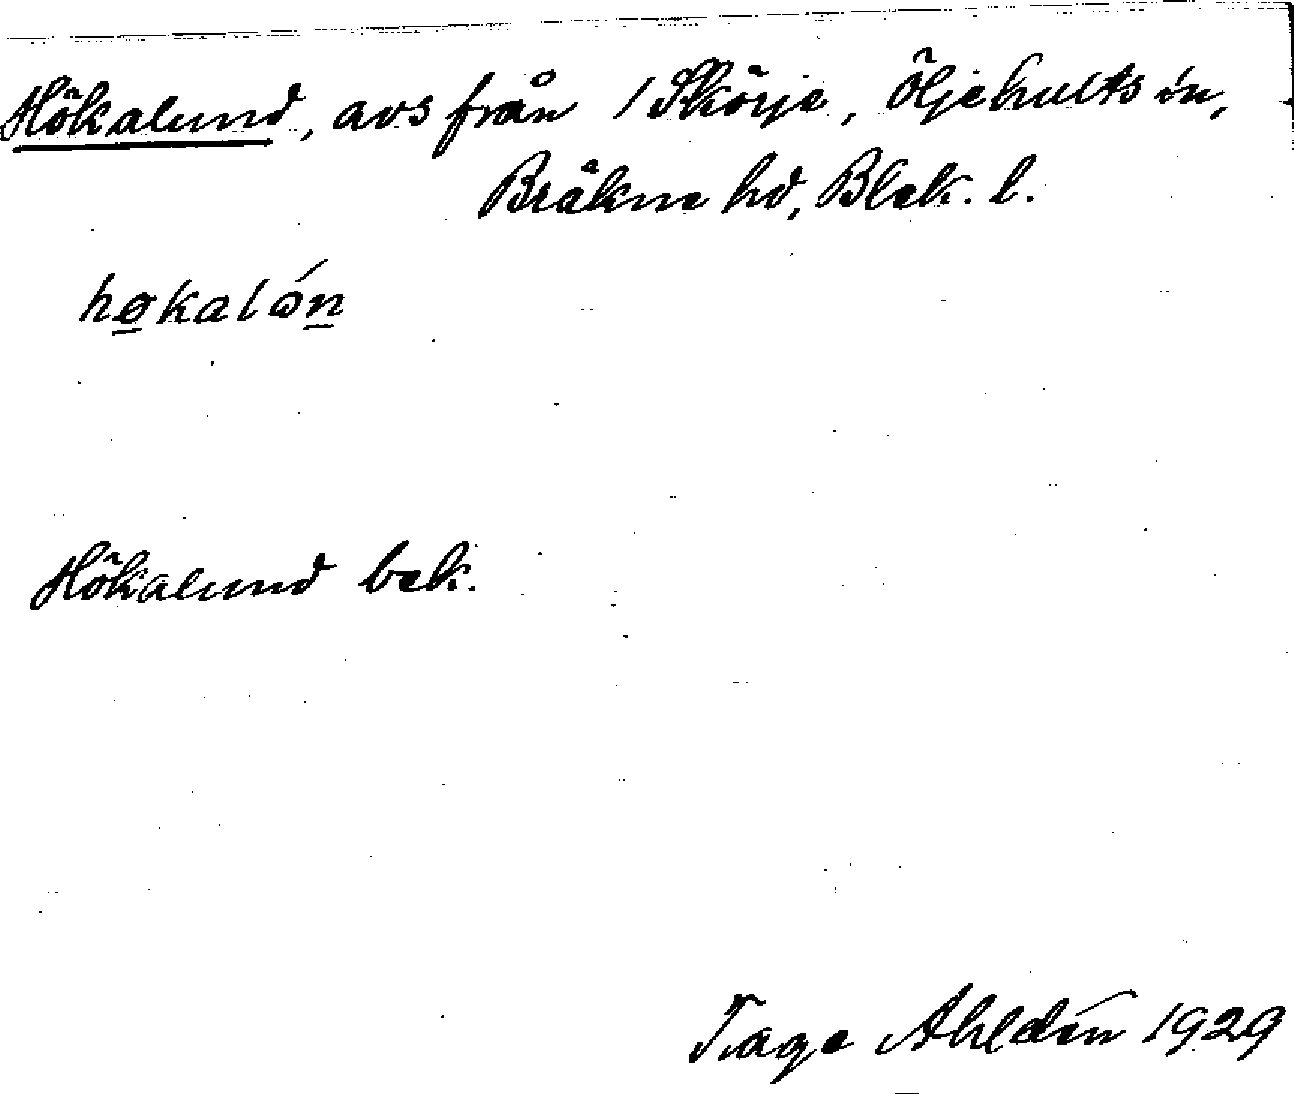 Hökalund, avs från 1 Skörje, Öljehults sn,
Bräkne hd, Blek. l.
høkalón
Hökalund bek.
Tage Ahldén 1929